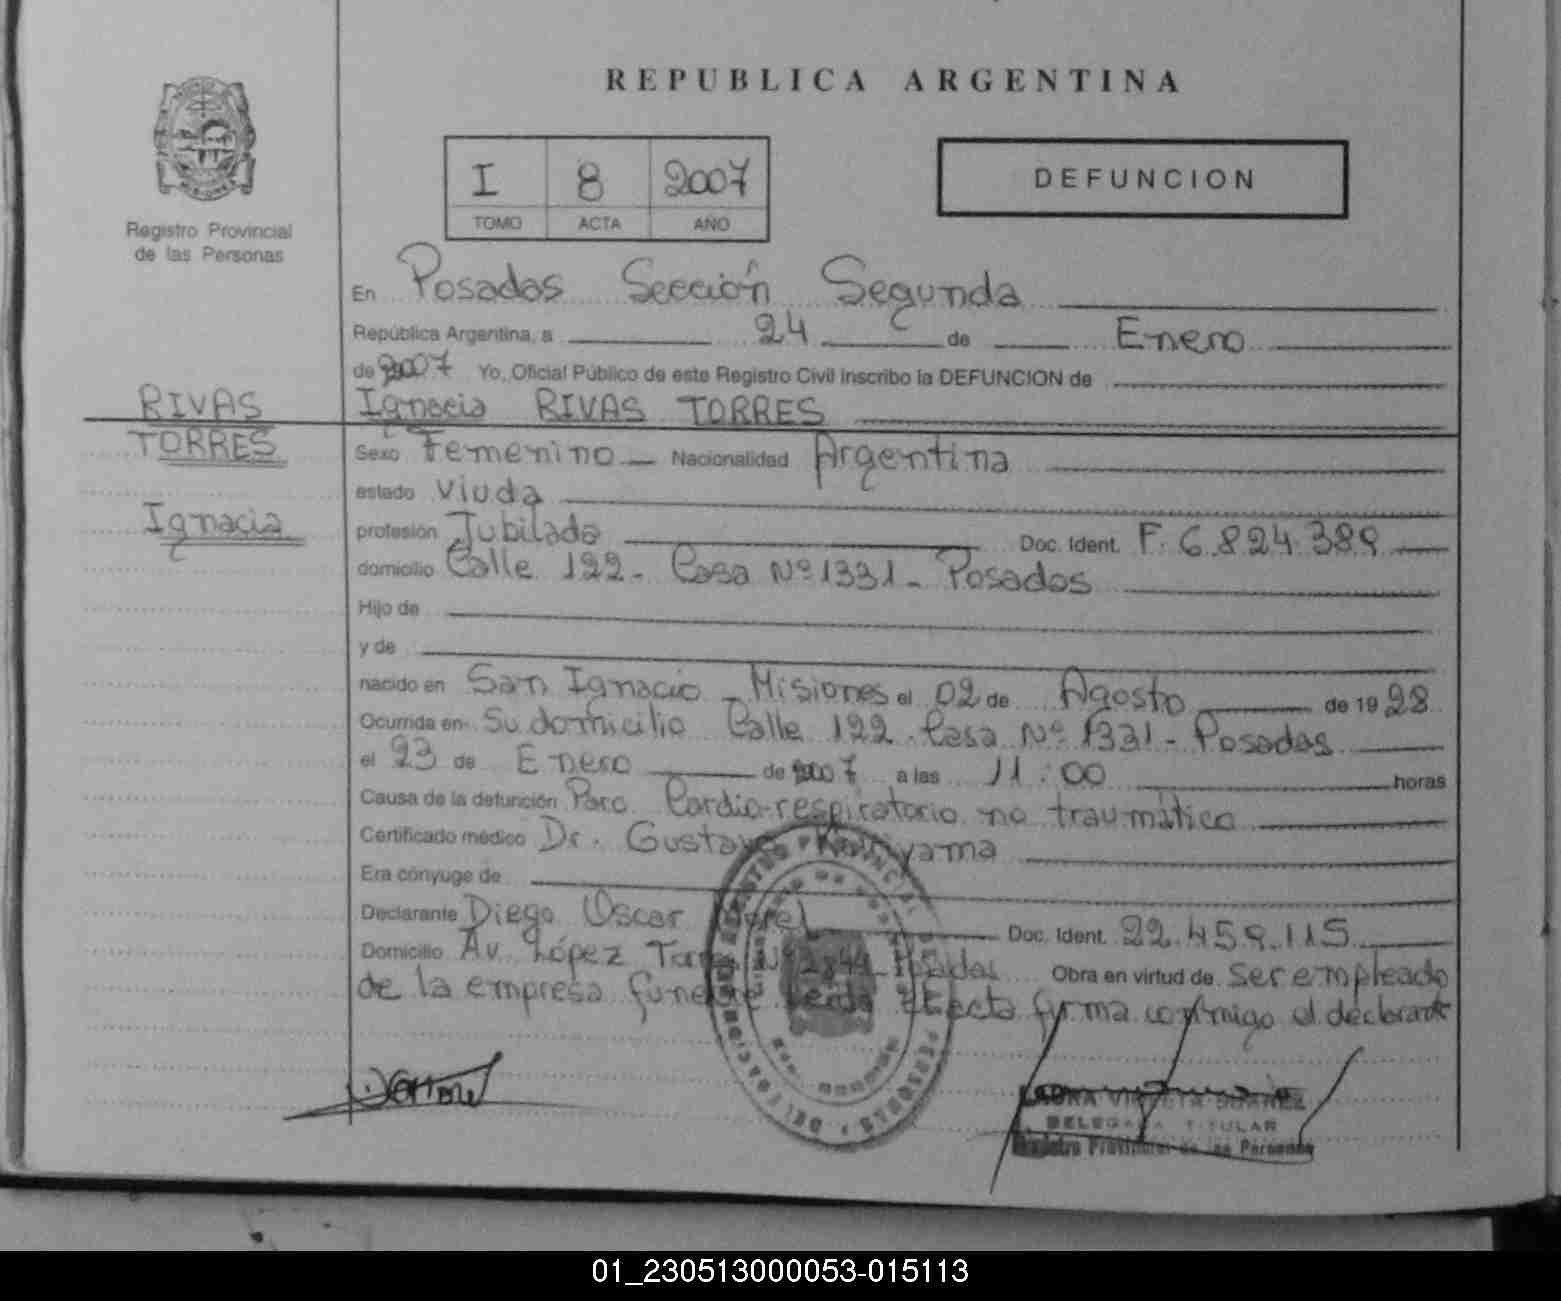 REPUBLICA ARGENTINA
I 8 2007
TOMO ACTA AÑO
DEFUNCION
Registro Provincial
de las Personas
En Posadas Sección Segunda
República Argentina, a 24 de Enero
de 2007 Yo, Oficial Público de este Registro Civil inscribo la DEFUNCION de
RIVAS Ignacia RIVAS TORRES
TORRES Sexo Femenino Nacionalidad Argentina
estado Viuda
Ignacia profesión Jubilada Doc. Ident. F. 6.824.389
domicilio Calle 122 - Casa Nº 1331 - Posadas
Hijo de
y de
nacido en San Ignacio - Misiones el 02 de Agosto de 1928
Ocurrida en Su domicilio Calle 122 - Casa Nº 1331 - Posadas
el 23 de Enero de 2007 a las 11:00 horas
Causa de la defunción Paro Cardio-respiratorio no traumático
Certificado médico Dr. Gustavo
Era cónyuge de
Declarante Diego Oscar Doc. Ident. 22.459.115
Domicilio Av. López Posadas Obra en virtud de ser empleado
de la empresa funebre acta firma conmigo el declarante
DELEGADA TITULAR
Registro Provincial de las Personas
01_230513000053-015113